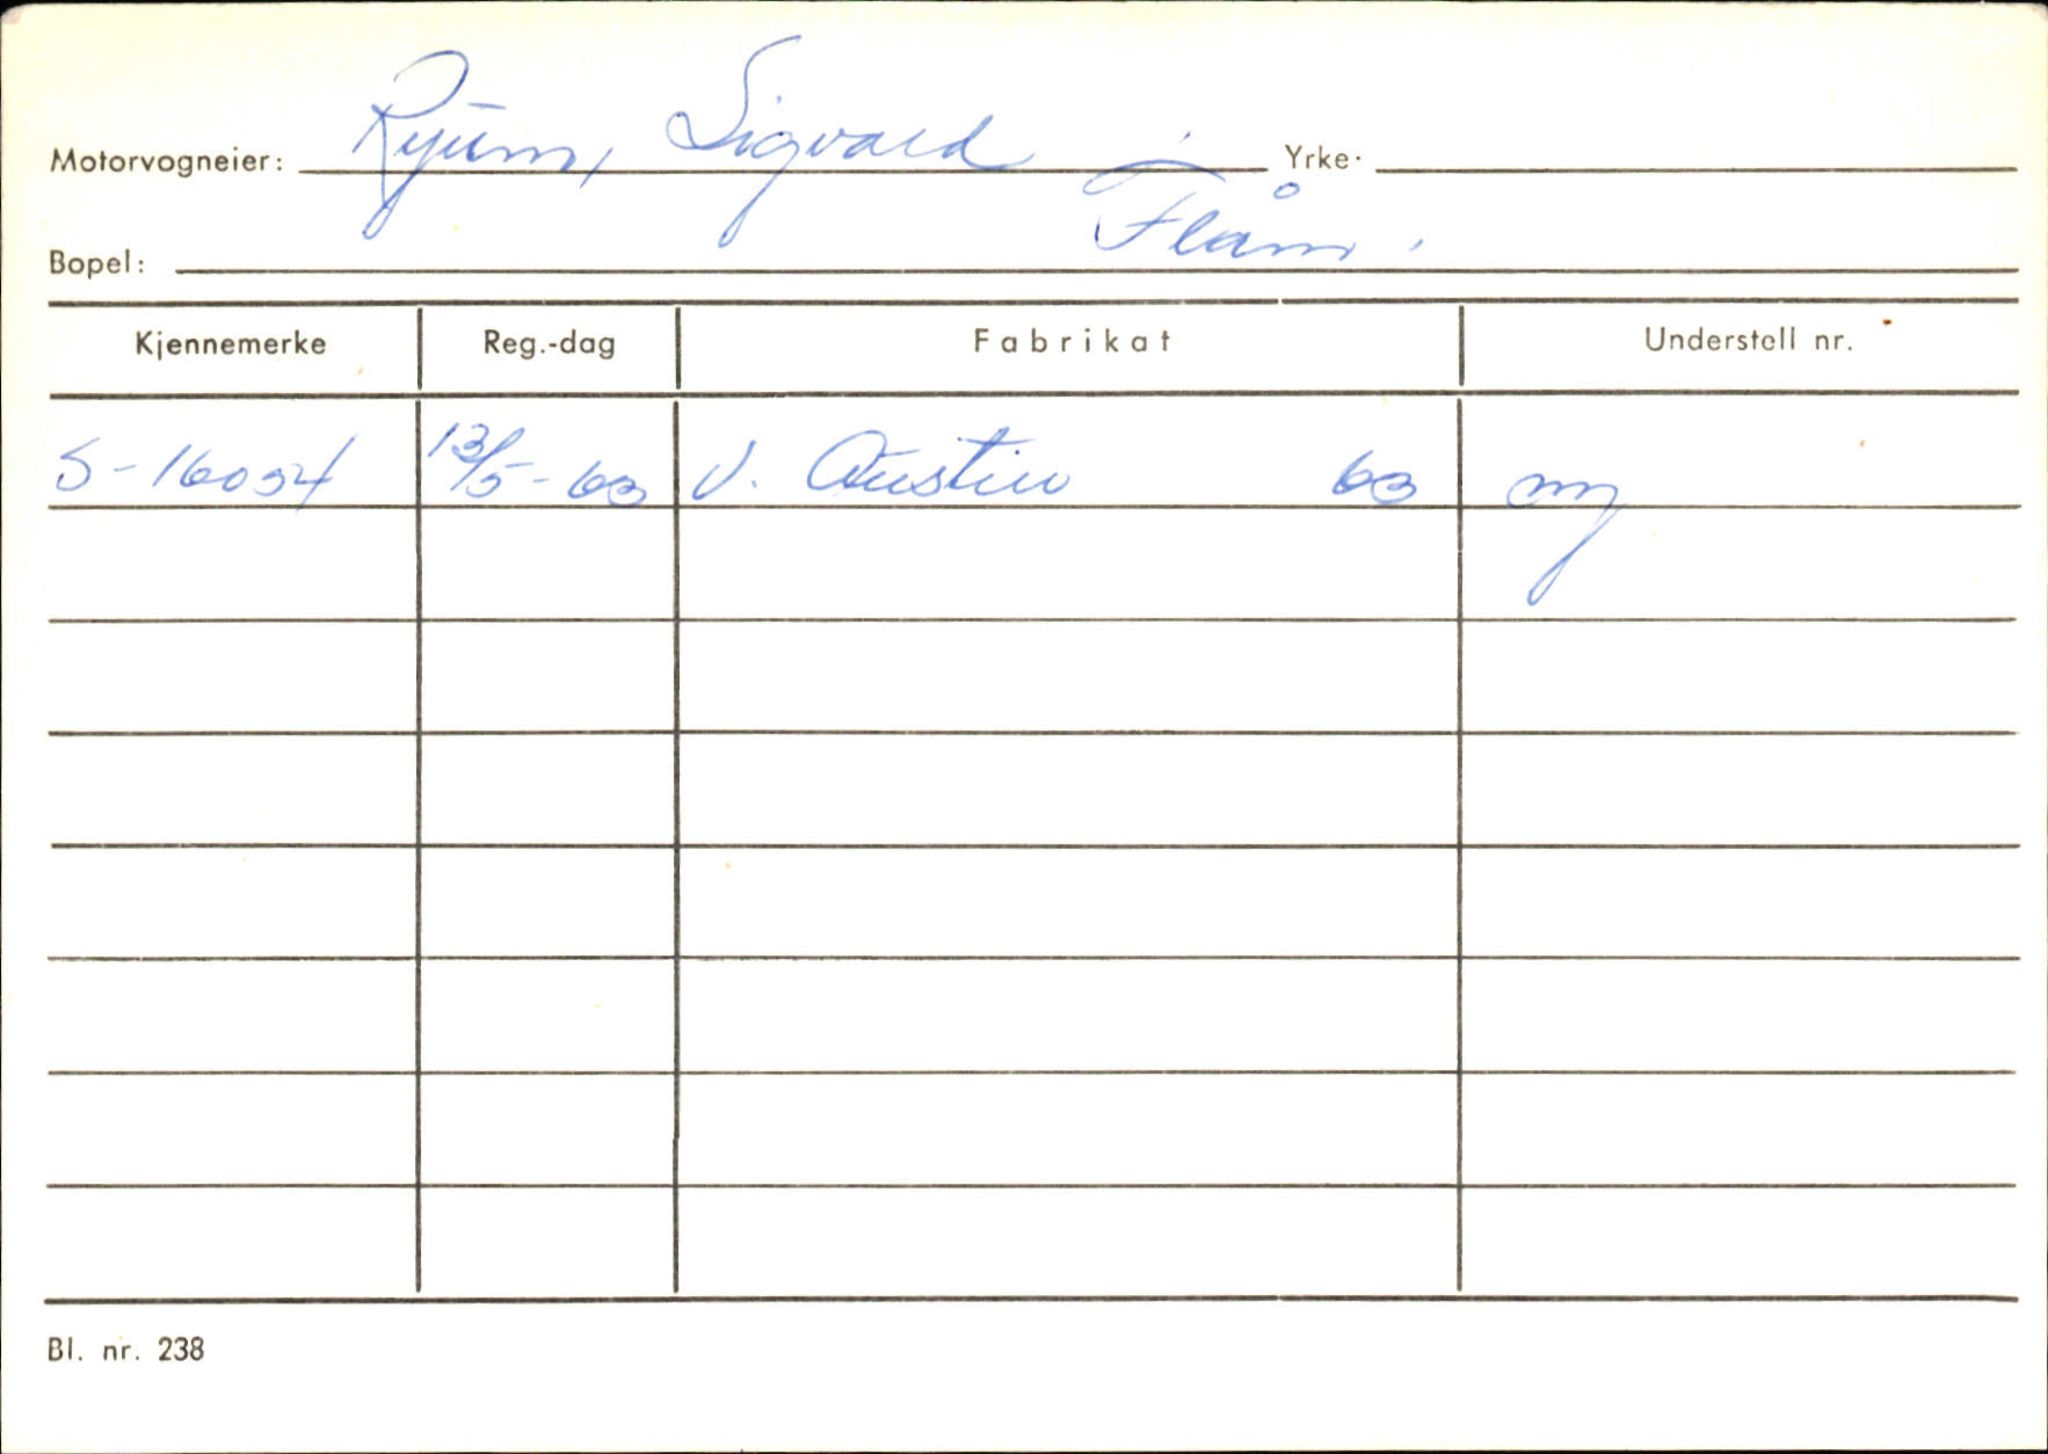 Motorvogneier: Ryum, Sigvald Yrke.
Bopel: Flåm.
Kjennemerke Reg.-dag Fabrikat Understell nr.
S-16054 13/5-63 V. Austin 63 ny
Bl. nr. 238